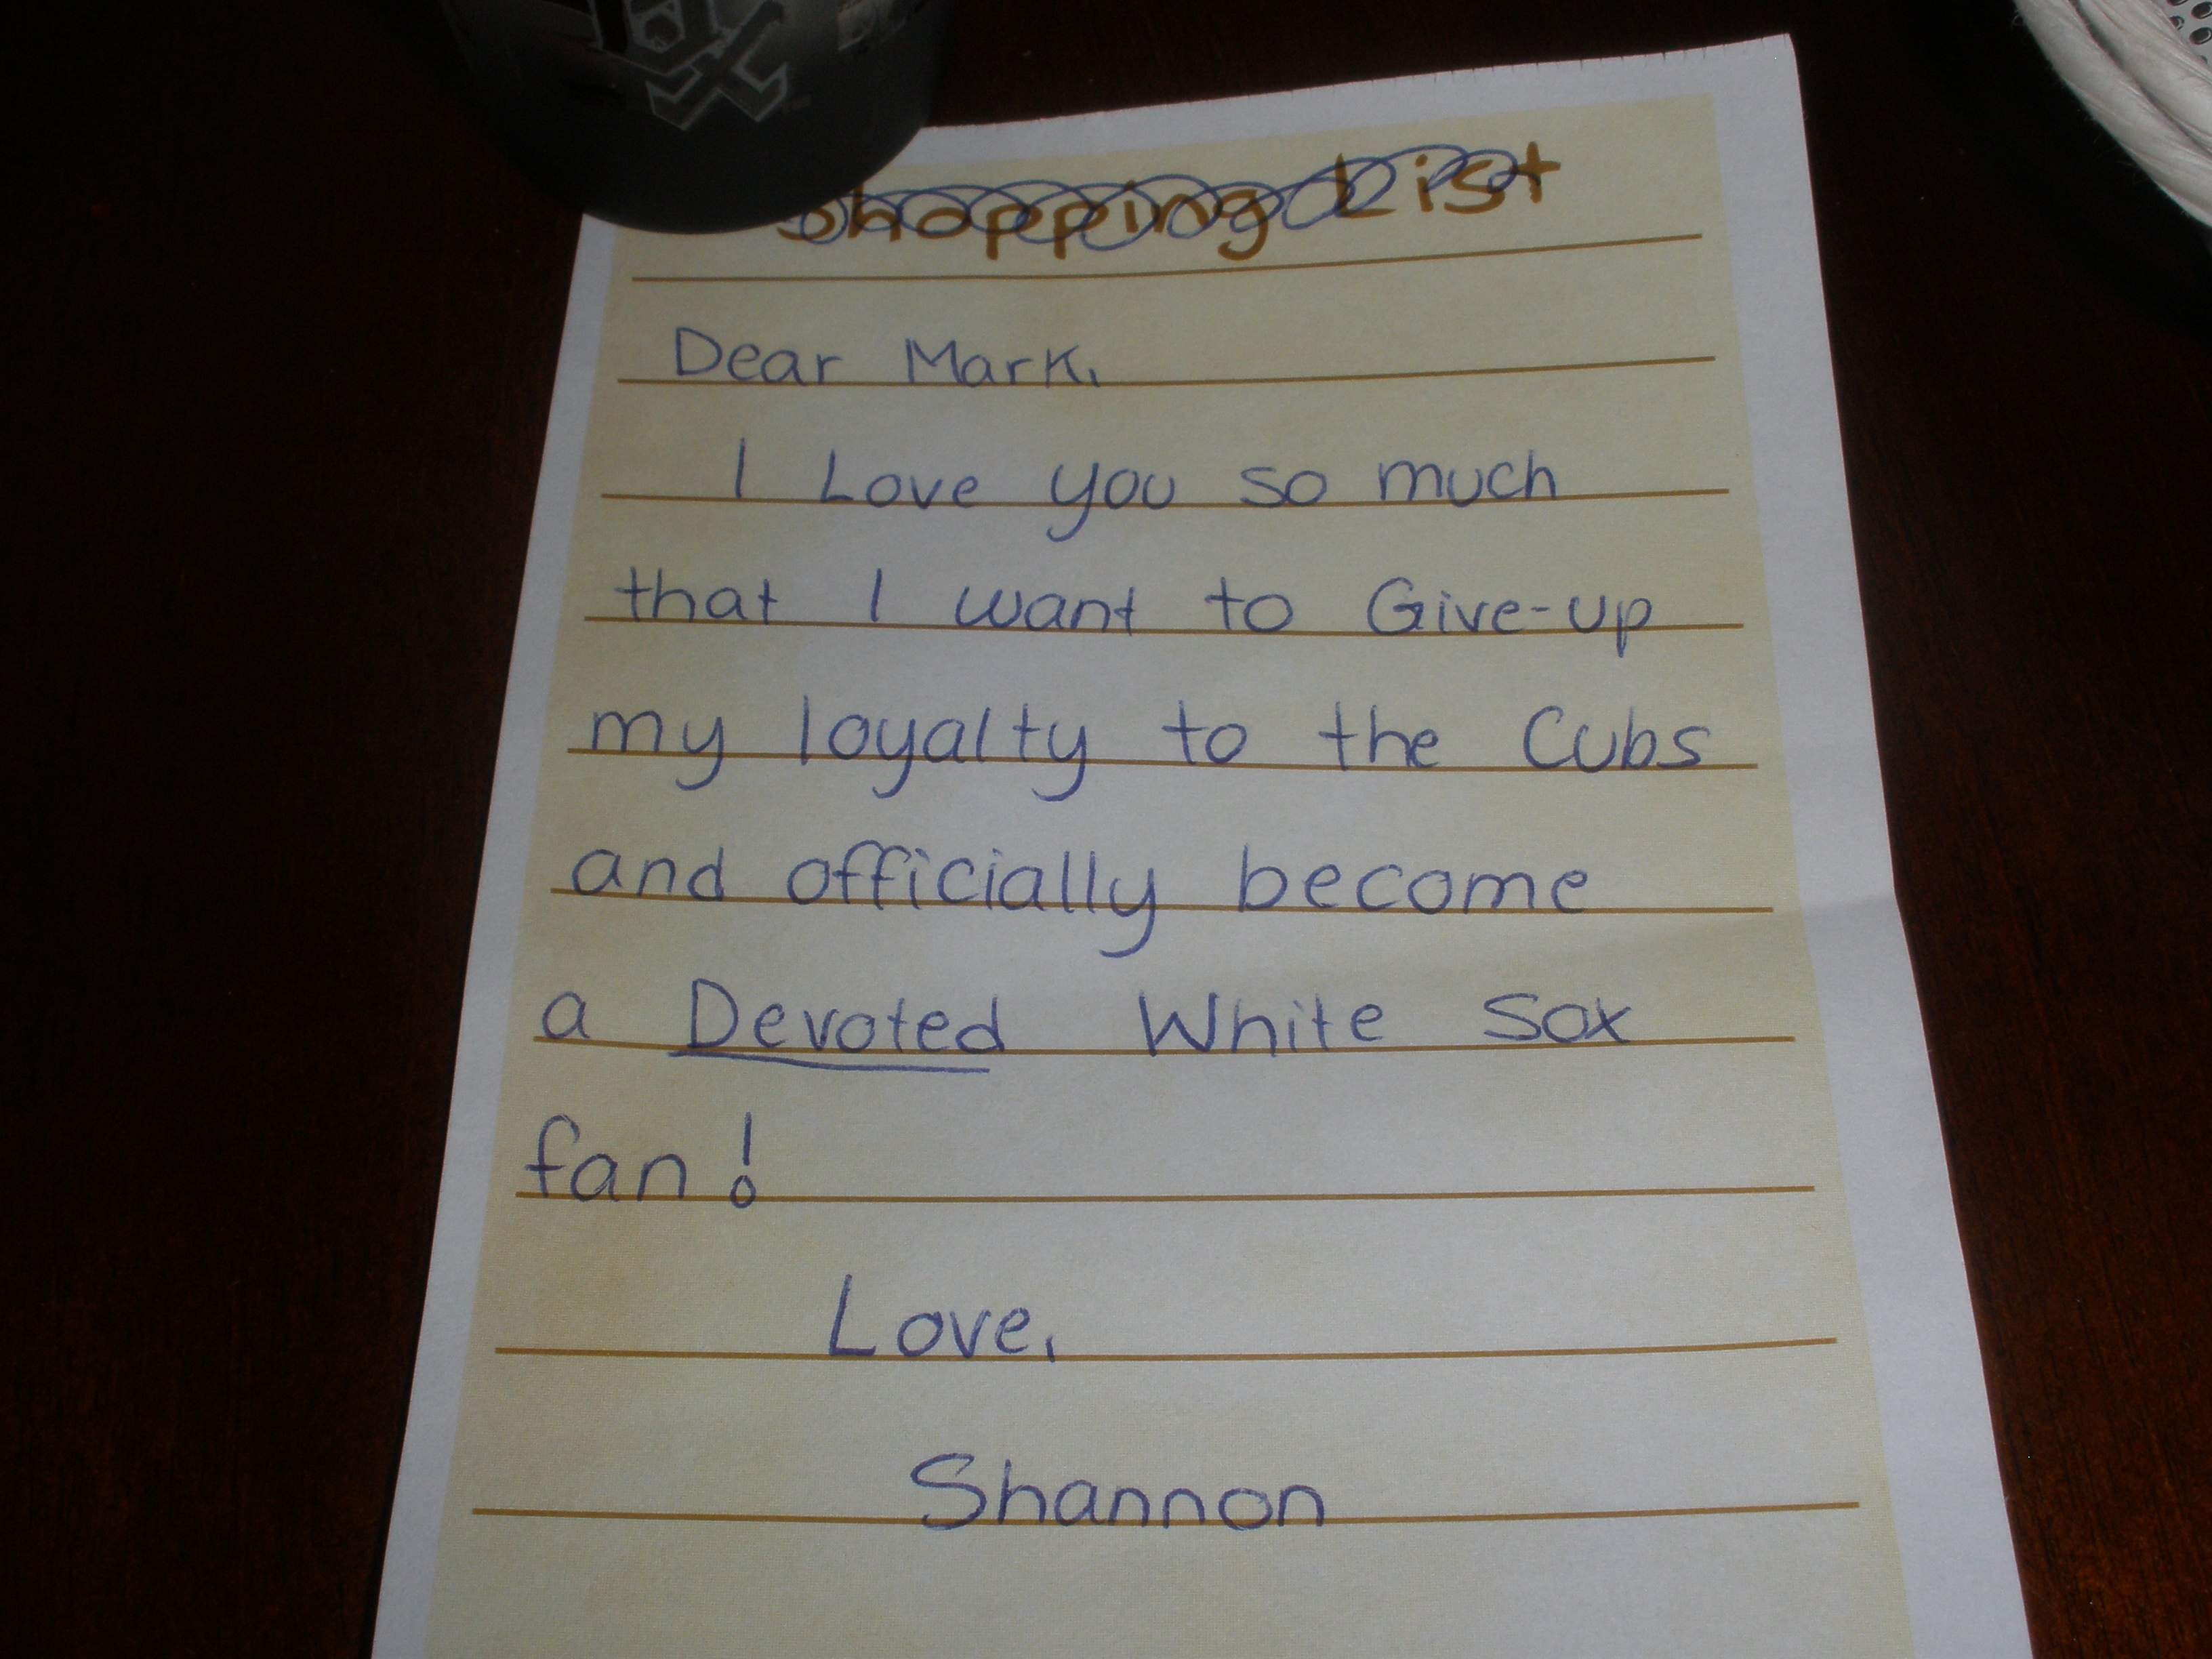 Shopping List
Dear Mark,
I Love you so much
that I want to Give-up
my loyalty to the Cubs
and officially become
a Devoted White Sox
fan!
Love,
Shannon